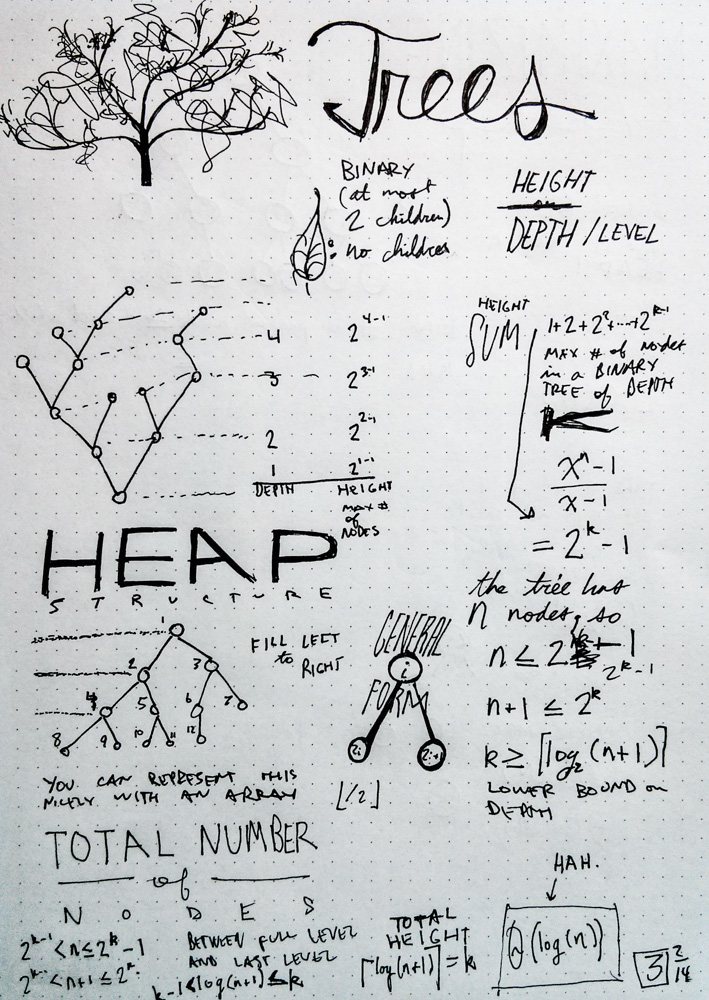 Trees
BINARY
(at most
2 children)
: no children
HEIGHT
DEPTH / LEVEL
4 2^4-1
3 2^3-1
2 2^2-1
1 2^1-1
DEPTH HEIGHT
MAX #
of
NODES
HEIGHT
SUM
1+2+2²+...+2^k-1
MAX # of NODES
in a BINARY
TREE of DEPTH
K
x^n - 1
x - 1
= 2^k - 1
the tree has
n nodes, so
n ≤ 2^k-1
n+1 ≤ 2^k
k ≥ ⌈log₂(n+1)⌉
LOWER BOUND on
DEPTH
HEAP
STRUCTURE
FILL LEFT
to RIGHT
1
2 3
4 5 6 7
8 9 10 11 12
GENERAL
FORM
i
2i 2i+1
⌊i/2⌋
YOU CAN REPRESENT THIS
NICELY WITH AN ARRAY
TOTAL NUMBER
of
NODES
2^k-1 < n ≤ 2^k - 1
2^k-1 < n+1 ≤ 2^k
BETWEEN FULL LEVEL
AND LAST LEVEL
k-1 < log(n+1) ≤ k
TOTAL
HEIGHT
⌈log(n+1)⌉ = k
HAH.
(log(n))
3 2/14